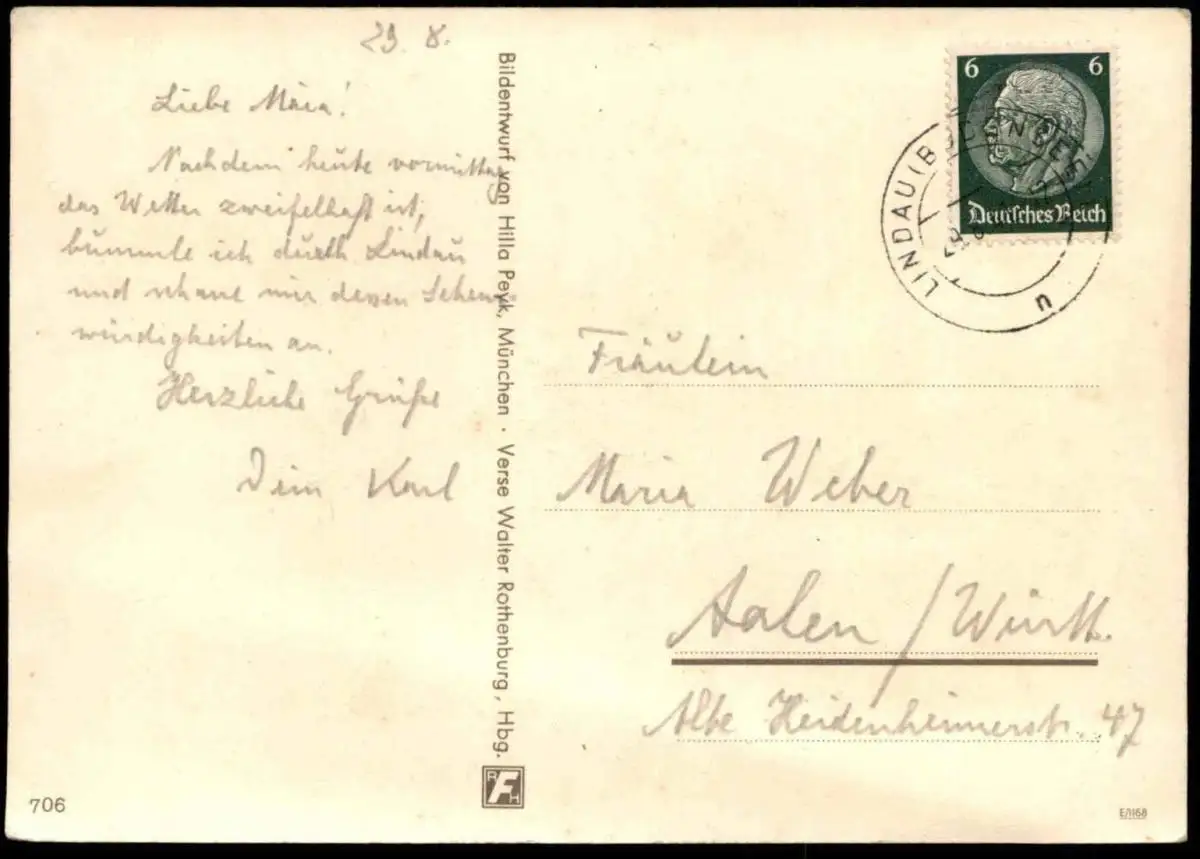 29. 8.
Liebe Maria!
Nachdem heute vormittag
das Wetter zweifelhaft ist,
bummle ich durch Lindau
und schaue mir dessen Sehens-
würdigkeiten an.
Herzliche Grüße
Dein Karl
Bildentwurf von Hilla Peyk, München · Verse Walter Rothenburg, Hbg.
RFH
706
6 6
Deutsches Reich
LINDAU (BODENSEE)
29.8.
n
Fräulein
Maria Weber
Aalen / Württ.
Alte Heidenheimerstr. 47
E/1168